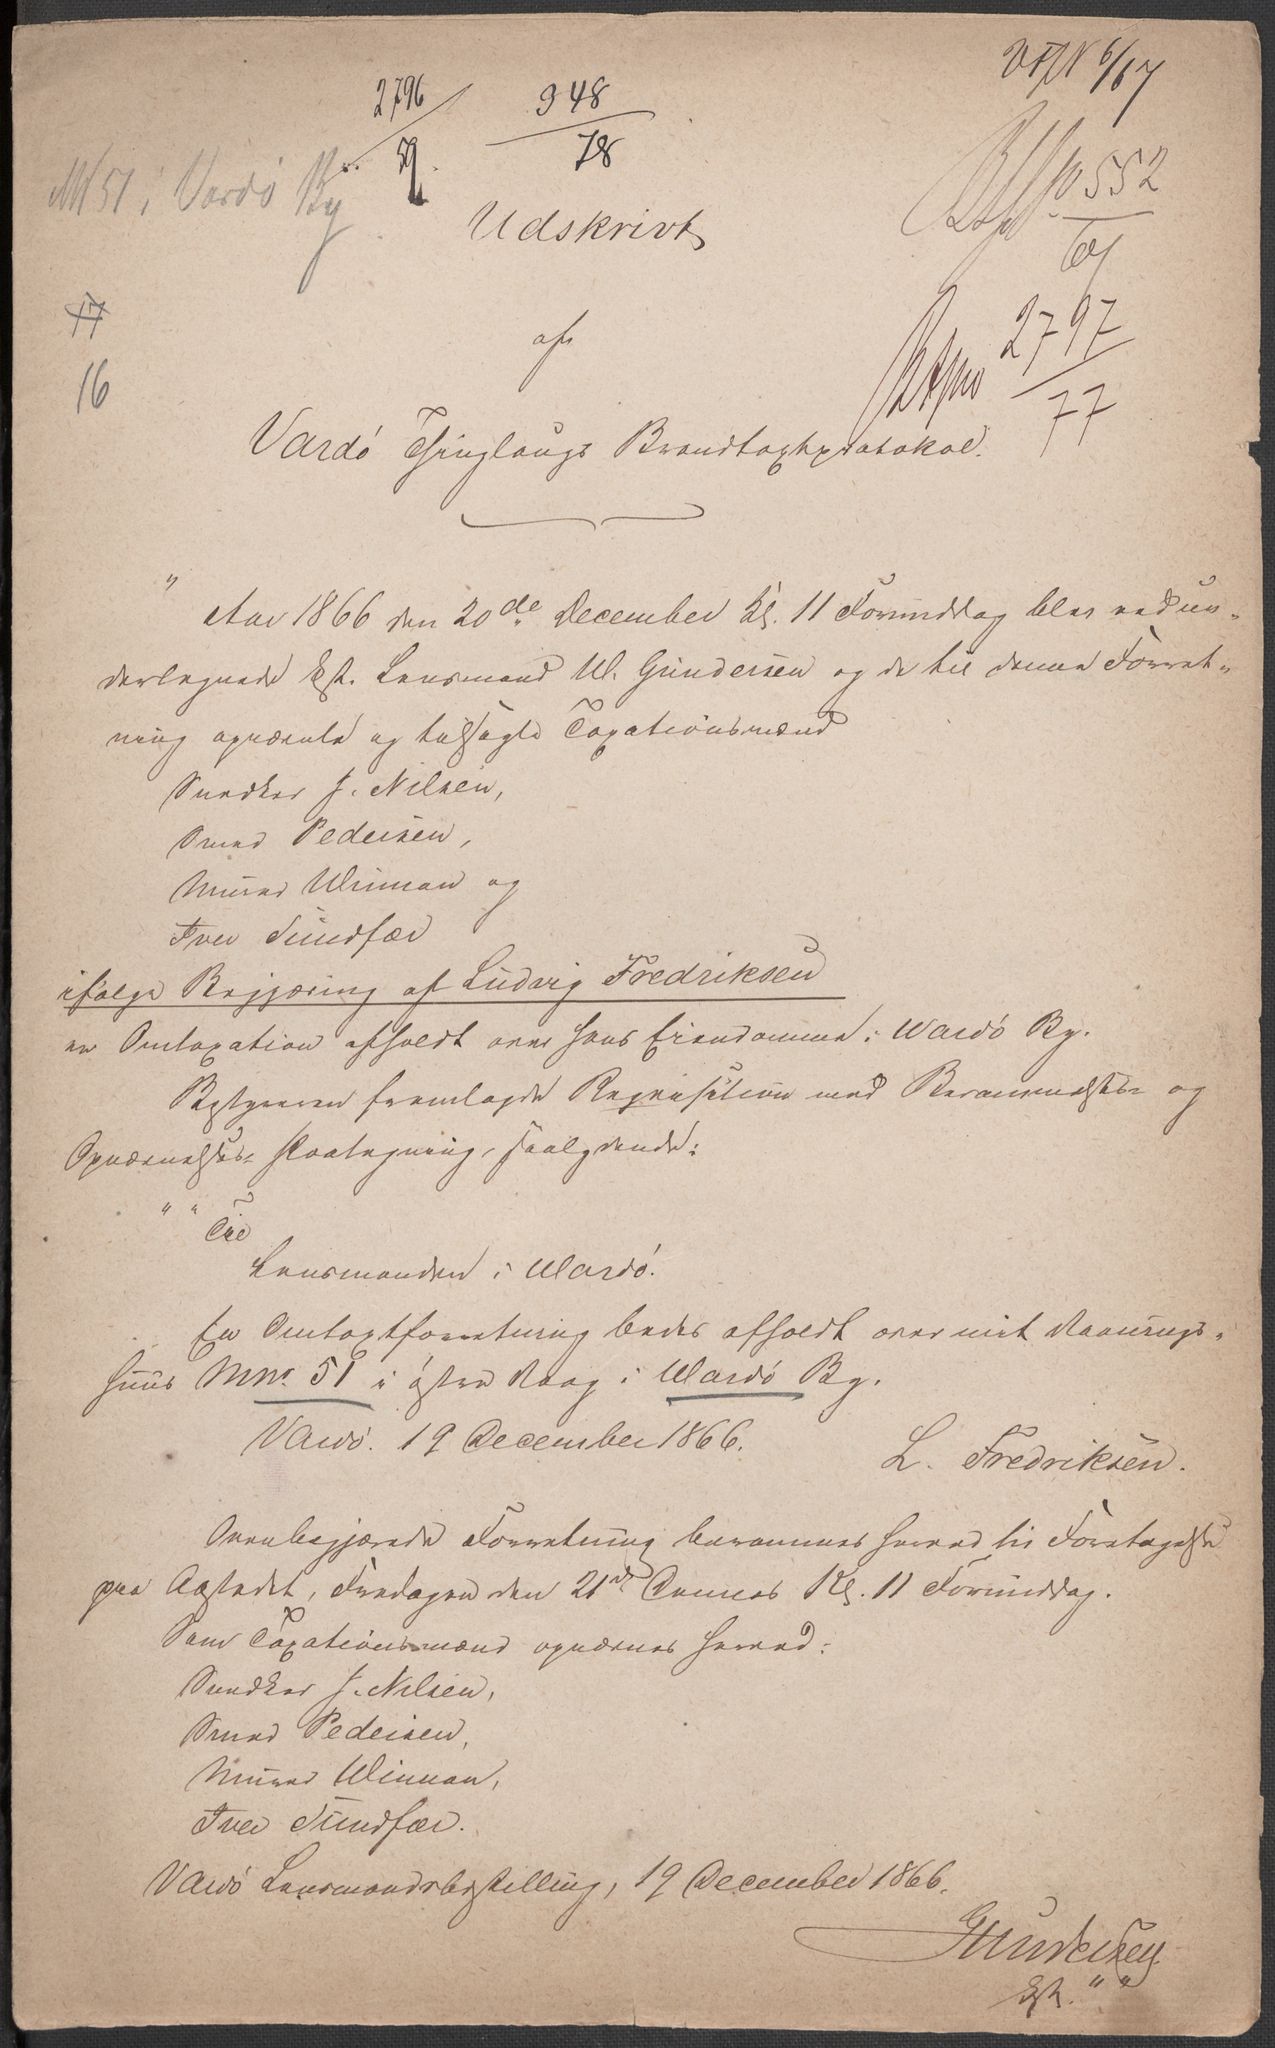 6/67
2796
948
78
552
67
M 51 i Vardö By
Udskrivt
17
2797
77
af
16
Vardö Thinglaugs Brandtaxtprotokol.
" Aar 1866 den 20de December Kl. 11 Formiddag blev ved un-
dertegnede Kst. Lensmand W. Gundersen og de til denne Forret-
ning opnævnte og tilsagte Taxationsmænd
Snedker J. Nilsen,
Smed Pedersen,
Murer Winman og
Iver Sundfær
ifølge Begjæring af Ludvig Fredriksen
en Omtaxation afholdt over hans Eiendomme i Wardö By.
Bestyreren fremlagde Requisition med Berammelses- og
Opnævnelses-Paategning, saalydende:
" " Til
Lensmanden i Wardö.
En Omtaxtforretning bedes afholdt over mit Vaanings-
huus Mnr. 51 i østre Vaag i Wardö By.
Vardö. 19 December 1866.
L. Fredriksen.
Ovenbegjærede Forretning berammes herved til Foretagelse
paa Aastedet, Fredagen den 21de Dennes Kl. 11 Formiddag.
Som Taxationsmænd opnævnes herved:
Snedker J. Nilsen,
Smed Pedersen,
Murer Winman,
Iver Sundfær.
Vardö Lensmandsbestilling, 19 December 1866.
Gundersen
Kst. " "